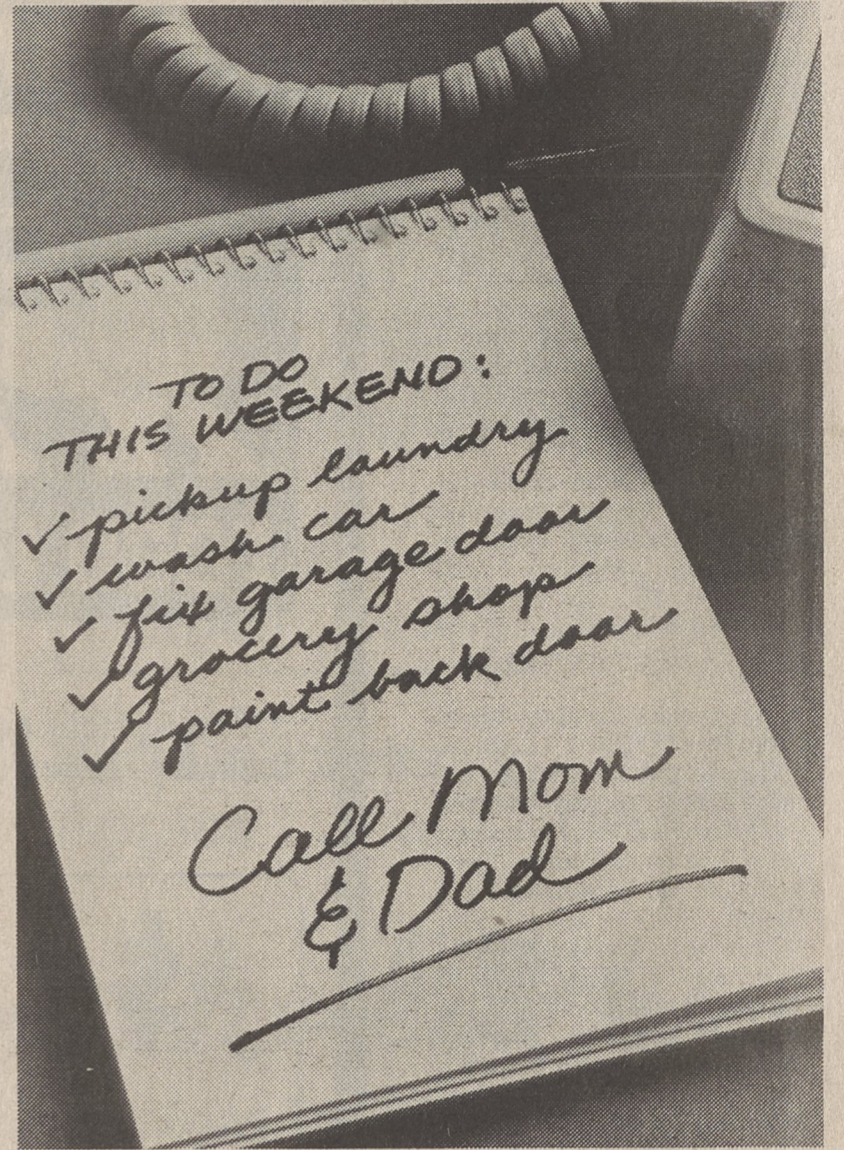 TO DO
THIS WEEKEND:
✓ pickup laundry
✓ wash car
✓ fix garage door
✓ grocery shop
✓ paint back door
Call Mom
& Dad